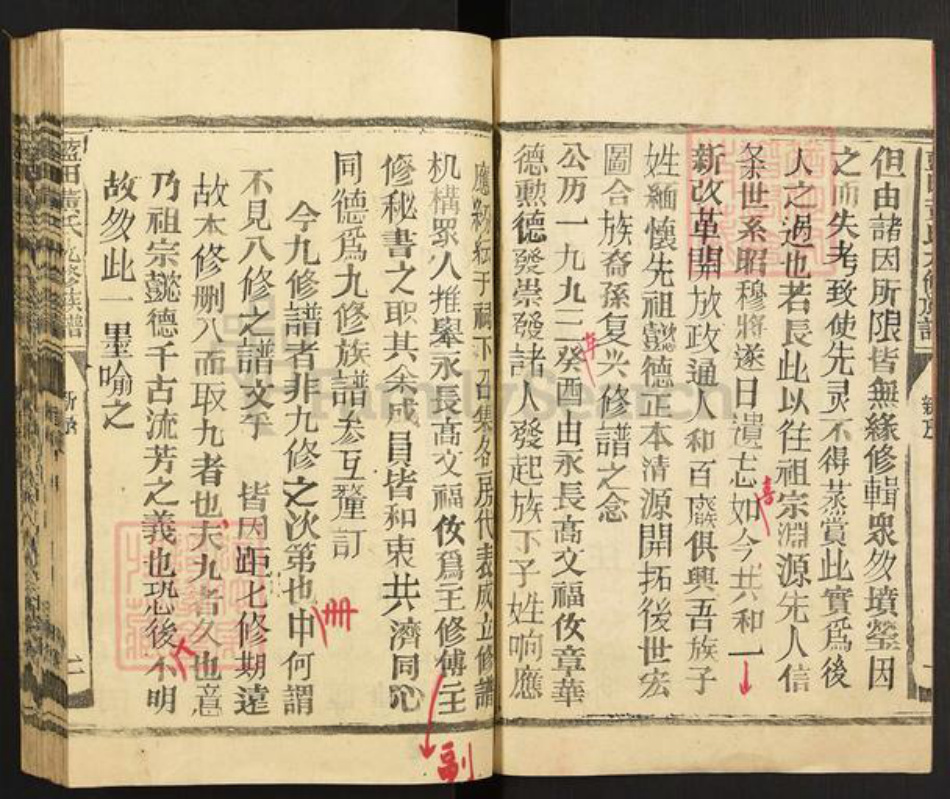 但由諸因所限皆無緣修輯衆多墳塋因
之而失考致使先灵不得蒸賞此實爲後
人之過也若長此以往祖宗淵源先人信
条世系昭穆將遂日潰忘如今共和一
新改革開放政通人和百廢俱興吾族子
姓緬懷先祖懿德正本清源開拓後世宏
圖合族裔孫复兴修譜之念
公历一九九三癸酉由永長高文福攸章華
德勲德發崇發諸人發起族下子姓响應
年
喜
應紛紜于祠下召集各房代表成立修譜
机構眾人推舉永長高文福攸爲王修傅主
修秘書之职其余成員皆和衷共濟同心
同德爲九修族譜参互釐訂
今九修譜者非九修之次第也申何謂
不見八修之譜文乎 皆因距七修期遠
故本修删八而取九者也夫九者久也意
乃祖宗懿德千古流芳之義也恐後不明
故多此一墨喻之
副
冊
藍田 氏九修族譜
新序
二
FamilySearch